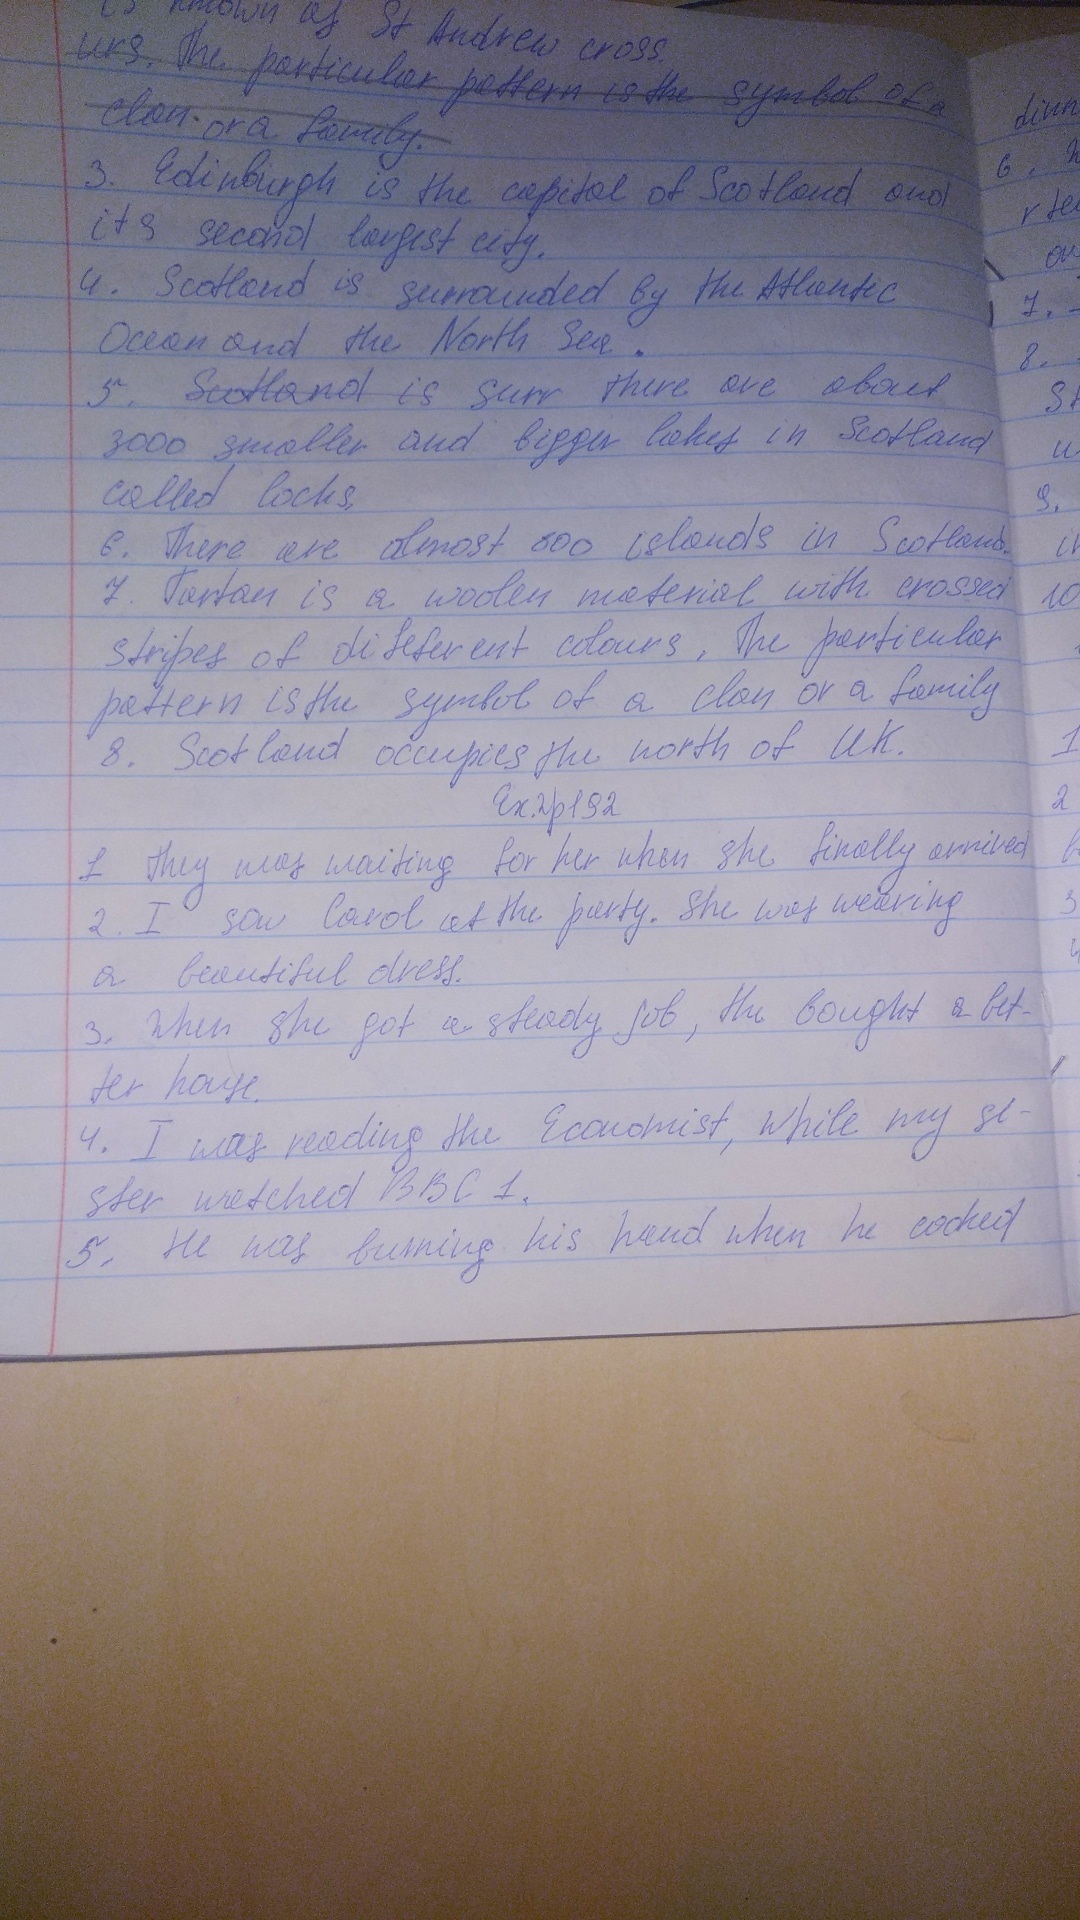 is known as St Andrew cross.
urs. The particular pattern is the symbol of a
clan. or a family.
3. Edinburgh is the capital of Scotland and
its second largest city.
4. Scotland is surrounded by the Atlantic
Ocean and the North Sea.
5. Scotland is surr there are about
3000 smaller and bigger lakes in Scotland
called locks
6. There are almost 800 islands in Scotland.
7. Tartan is a woolen material with crossed
stripes of different colours, The particular
pattern is the symbol of a clan or a family
8. Scotland occupies the north of UK.
Ex.2p192
1 They was waiting for her when she finally arrived
2. I saw Carol at the party. She was wearing
a beautiful dress.
3. When she got a steady job, the bought a bet-
ter house.
4. I was reading the Economist, while my si-
ster watched BBC 1.
5. He was burning his hand when he cooked
dinn
6.
7.
8.
9.
10
1
2
3
4